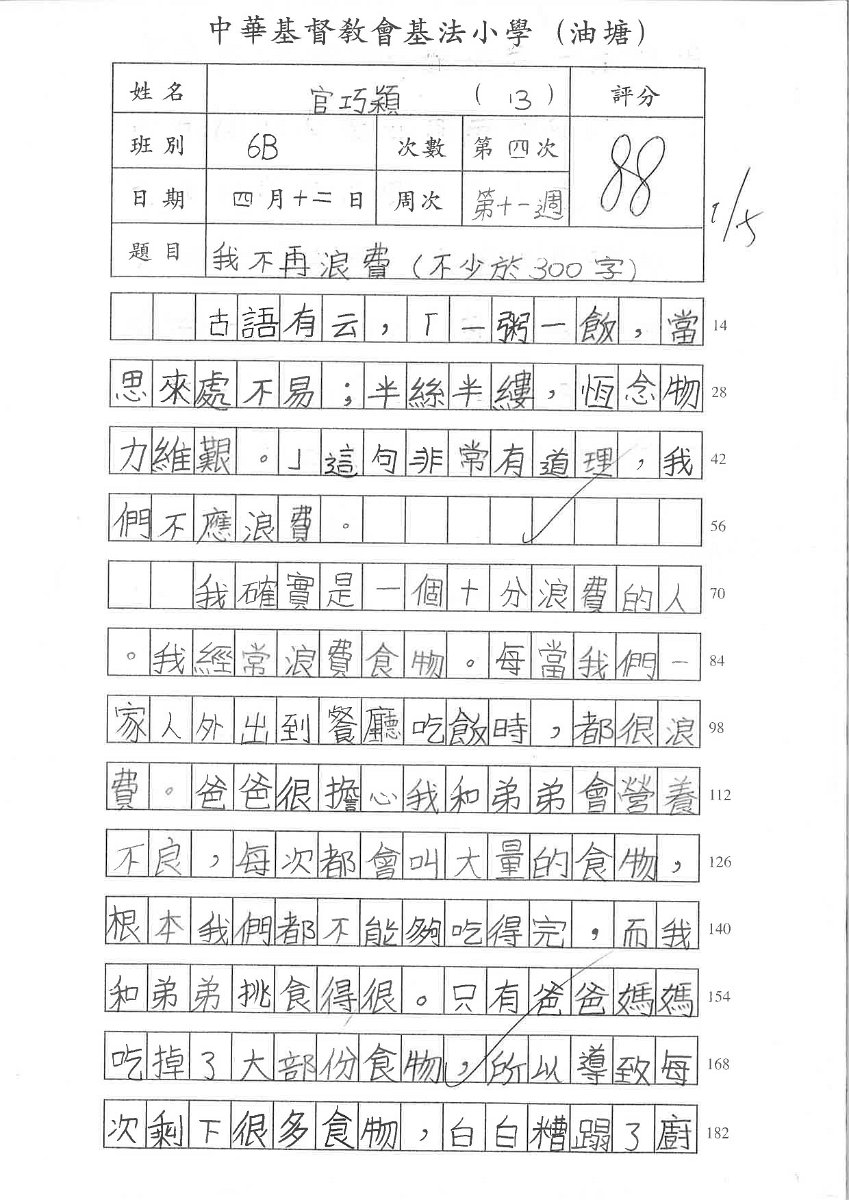 中華基督教會基法小學（油塘）
姓名 官巧穎 （13） 評分
班別 6B 次數 第四次 88
日期 四月十二日 周次 第十一週 1/5
題目 我不再浪費（不少於300字）
古語有云，「一粥一飯，當 14
思來處不易；半絲半縷，恆念物 28
力維艱。」這句非常有道理，我 42
們不應浪費。 56
我確實是一個十分浪費的人 70
。我經常浪費食物。每當我們一 84
家人外出到餐廳吃飯時，都很浪 98
費。爸爸很擔心我和弟弟會營養 112
不良，每次都會叫大量的食物， 126
根本我們都不能夠吃得完，而我 140
和弟弟挑食得很。只有爸爸媽媽 154
吃掉了大部份食物，所以導致每 168
次剩下很多食物，白白糟蹋了廚 182